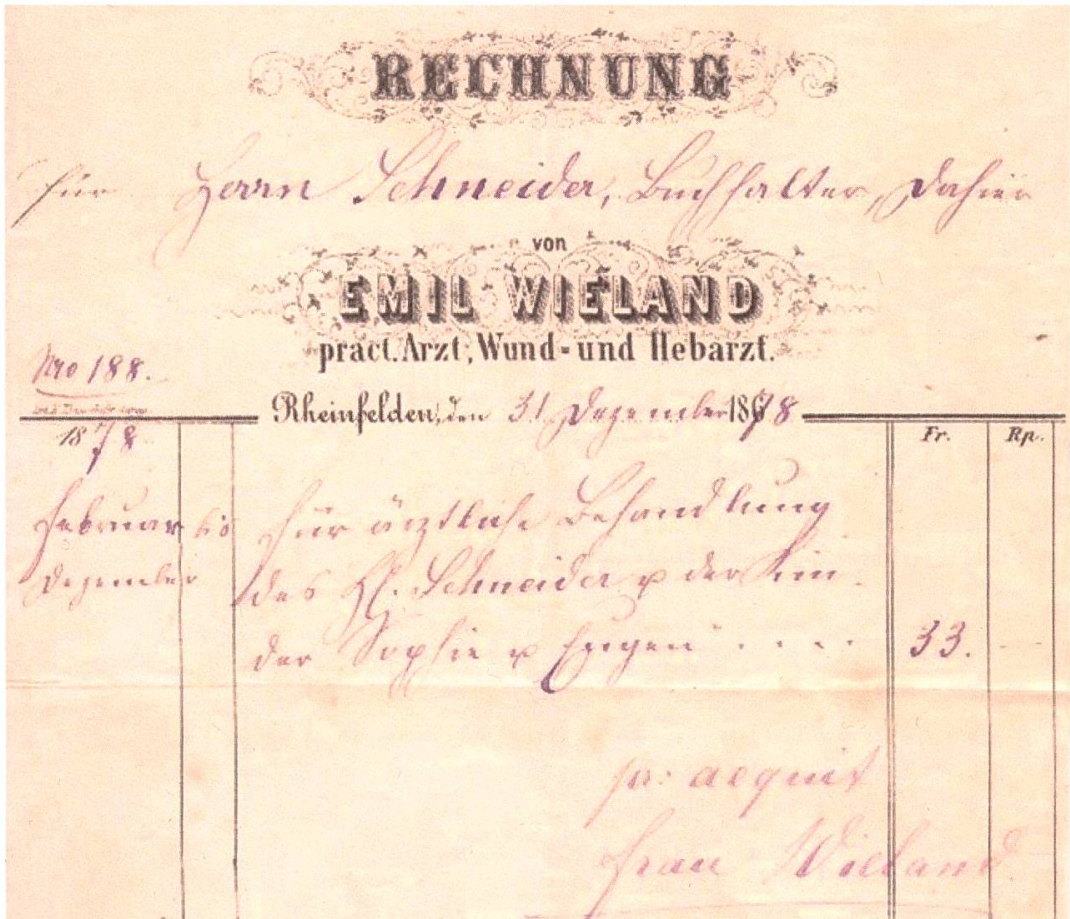 RECHNUNG
für Herrn Schneider, Buchhalter, dahier
von
EMIL WIELAND
pract. Arzt, Wund- und Hebarzt.
Nro 188.
Rheinfelden, den 31 Dezember 1878
1878
Fr. Rp.
Februar bis für ärztliche Behandlung
Dezember des H. Schneider u der Kin-
der Sophie u Eugen . . . . 33. -
pr: acquit
Frau Wieland